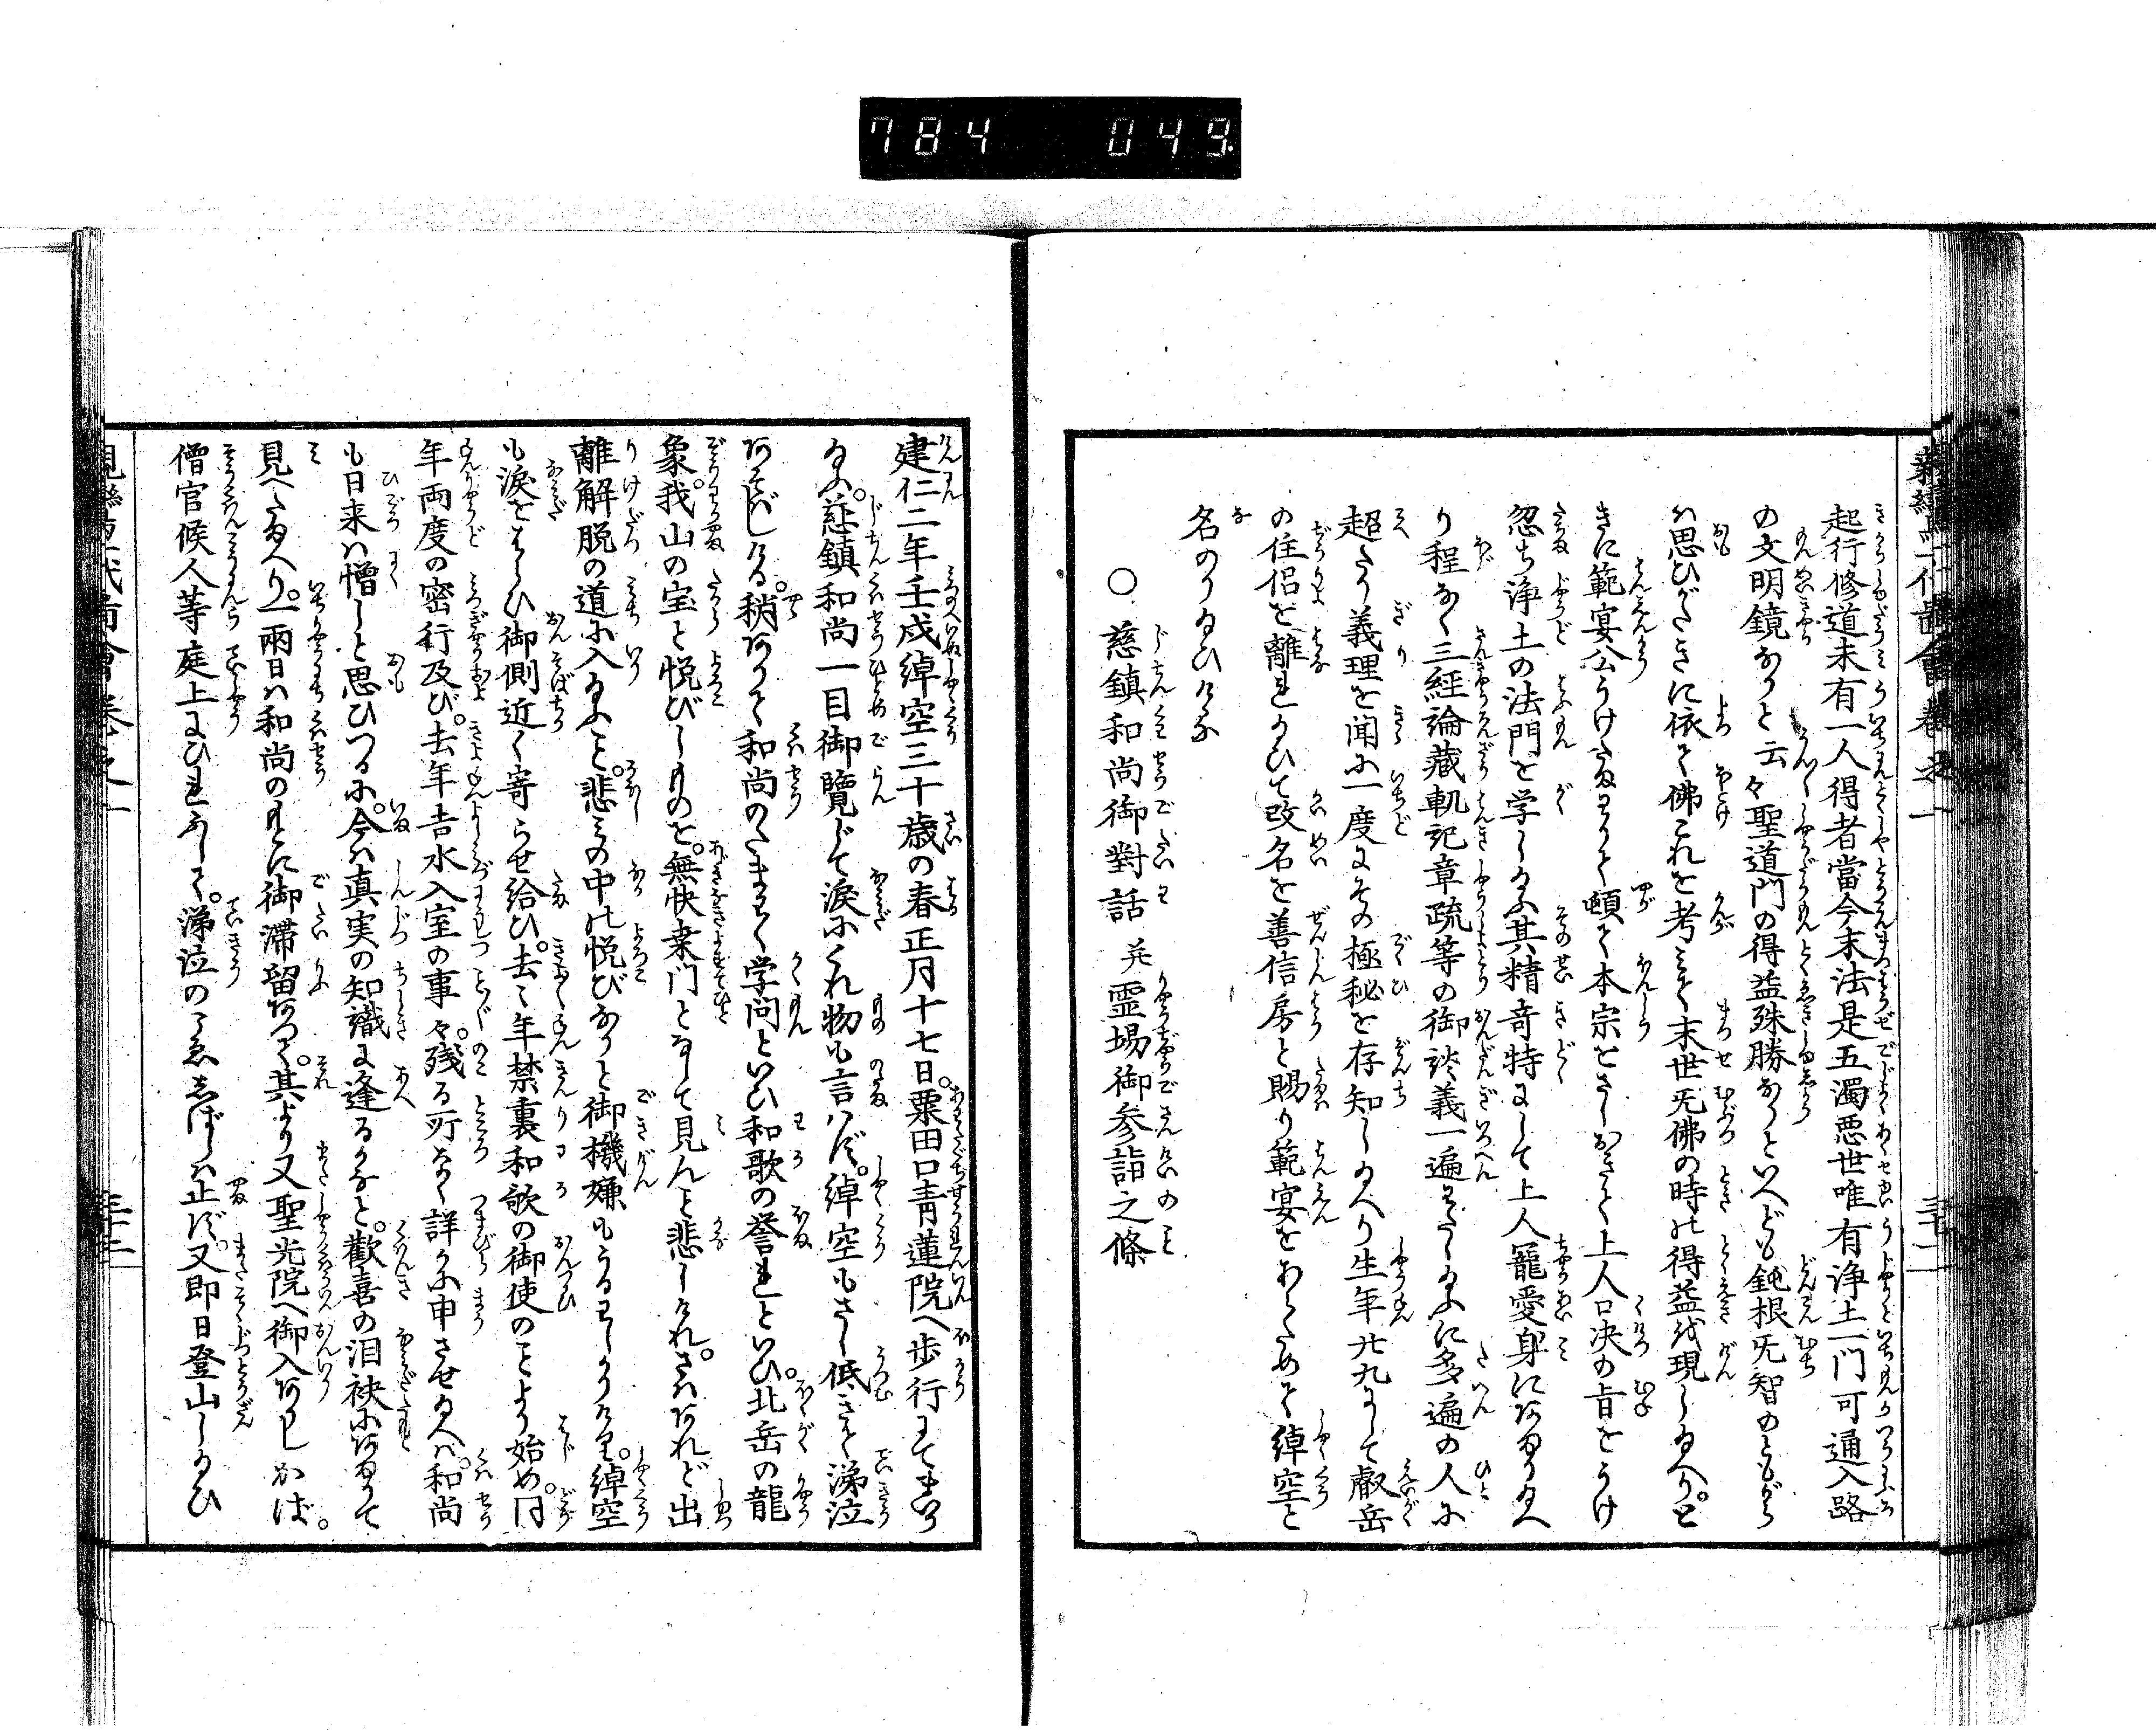 784 049.
起行修道未有一人得者當今末法是五濁悪世唯有浄土一門可通入路
の文明鏡なりと云々聖道門の得益殊勝なりといへども鈍根无智のともがら
ハ思ひがたきに依て佛これを考ミそ末世无佛の時の得益を現し給へり
きに範宴公うけたまわりて頓て本宗をさしおきて上人口决の旨をうけ
忽ち浄土の法門を学し給ふ其精竒特にして上人寵愛身にあまり給へ
り程なく三経論藏軌記章疏等の御談義一遍をたし給ふに多遍の人に
超たり義理を聞に一度にその極秘を存知し給へり生年廿九にして叡岳
の住侶を離れ給ひて改名を善信房と賜り範宴をあらためて綽空と
名のり給ひける
○慈鎮和尚御對話并霊場御参詣之條
建仁二年壬戌綽空三十歳の春正月十七日。粟田口青蓮院へ歩行にてまいり
給ふ。慈鎮和尚一目御覽じて涙にくれ物も言ハず。綽空もさし低きて涕泣
あそばしける。稍ありて和尚のたまわく学問といひ和歌の誉れといひ。北岳の龍
象。我山の宝と悦びしものを。無快桒门となして見んと悲しけれ。さハあれど出
離解脱の道に入給ふと。悲ミの中の悦びなりと御機嫌もうるわしかりけれ。綽空
も涙をはらひ御側近く寄らせ給ひ。去々年禁裏和歌の御使のことより始め。同
年両度の密行及び。去年吉水入室の事々。残る所なく詳かに申させ給へハ。和尚
も日来ハ憎しと思ひつるに。今ハ真実の知識に逢るかなと。歡喜の泪袂にあまりて
見へたまへり。一兩日ハ和尚のもとに御滞留ありて。其より又聖光院へ御入ありしかば。
僧官候人等庭上にひれふして。涕泣のこゑしばしハ止ず。又即日登山し給ひ